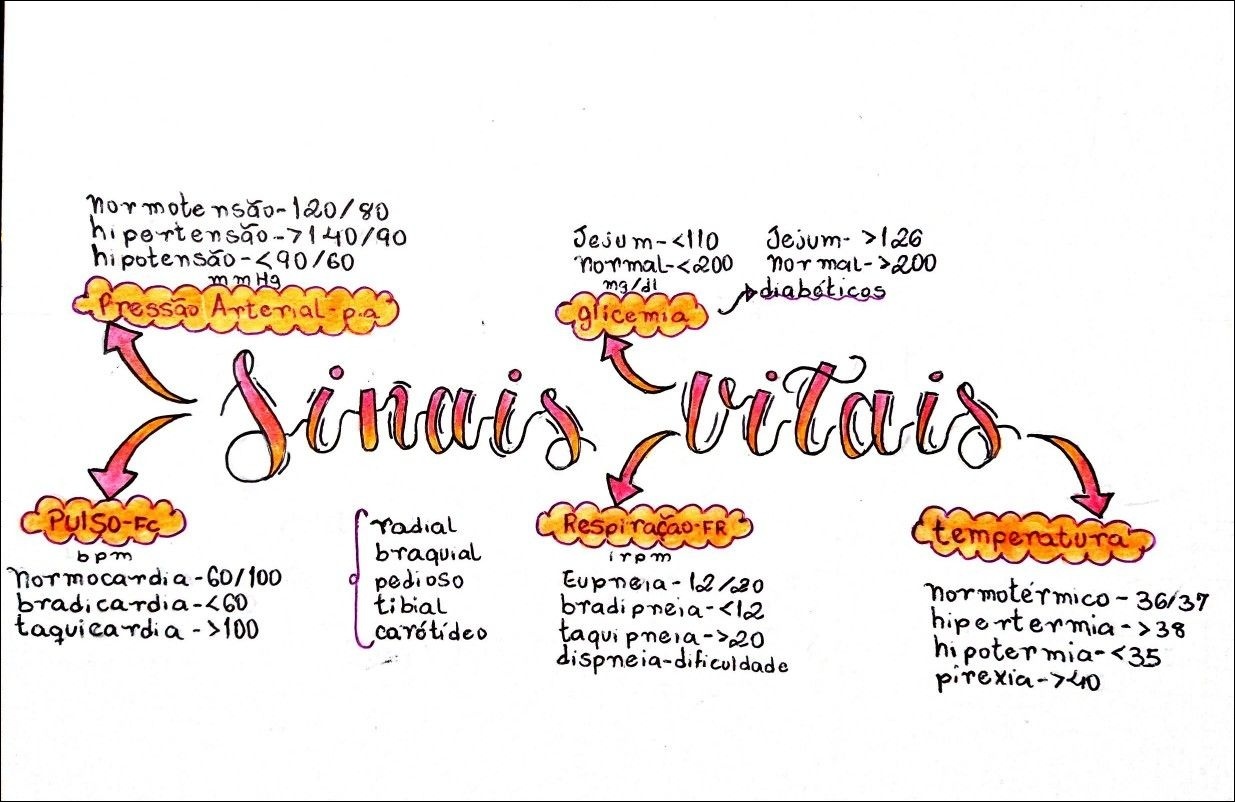 Normotensão-120/80
hipertensão->140/90
hipotensão-<90/60
mmHg
Pressão Arterial-p.a
Jejum-<110
normal-<200
mg/dl
glicemia
Jejum- >126
normal->200
diabéticos
Sinais vitais
Pulso-Fc
bpm
Normocardia-60/100
bradicardia-<60
taquicardia->100
radial
braquial
pedioso
tibial
carótídeo
Respiração-FR
irpm
Eupneia-12/20
bradipneia-<12
taquipneia->20
dispneia-dificuldade
temperatura
normotérmico-36/37
hipertermia->38
hipotermia-<35
pirexia->40